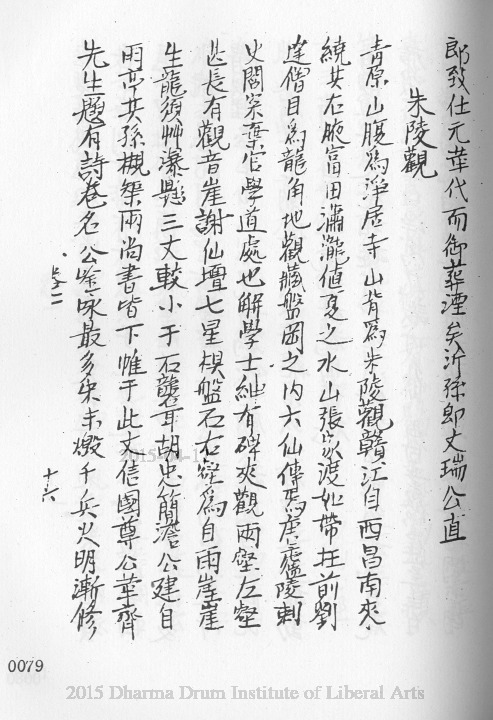 郎致仕元華代而御葬湮矣沂孫郎文瑞公直
朱陵觀
青原山腹為淨居寺山背為朱陵觀贛江自西昌南來
繞其右腋富田瀟瀧值夏之水山張家渡如帶拄前劉
達僧目為龍角地觀藏盤岡之内六仙傳焉唐 廬陵刺
史閻寀棄官學道處也解學士紳有碑夾觀兩壑左壑
甚長有觀音崖謝仙壇七星棋盤石右壑為自雨崖崖
生龍須艸瀑懸三丈較小于石龔耳胡忠簡澹公建自
雨亭其孫槻榘兩尚書皆下帷于此文信國尊公革齊
先生題有詩卷名公唫咏最多宋末燬于兵火明漸修
卷二
十六
0079
2015 Dharma Drum Institute of Liberal Arts